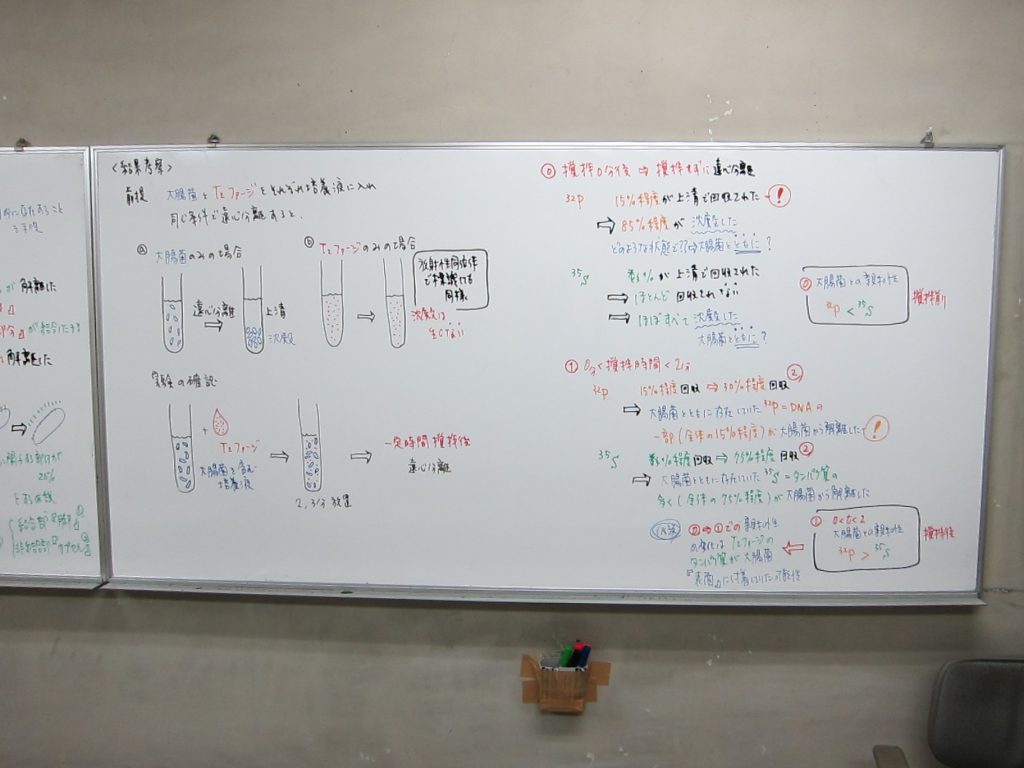 的に存在すること
が解離した
部分が結合したまま
解離した
25%
<結果考察>
前提 大腸菌とT2ファージをそれぞれ培養液に入れ
同じ条件で遠心分離すると、
ⓐ 大腸菌のみの場合
遠心分離
上清
沈殿
ⓑ T2ファージのみの場合
放射性同位体
で標識しても
同様
沈殿は
生じない
実験の確認
+
T2ファージ
大腸菌を含む
培養液
2,3分放置
一定時間撹拌後
遠心分離
⓪ 撹拌0分後 ⇒ 撹拌せずに遠心分離
32P 15%程度が上清で回収された !
⇒ 85%程度が沈殿した
どのような状態で??→大腸菌とともに?
35S 数%が上清で回収された
⇒ ほとんど回収されない
⇒ ほぼすべて沈殿した
大腸菌とともに?
⓪ 大腸菌との親和性
32P < 35S
撹拌前
① 0分<撹拌時間<2分
32P 15%程度回収 ⇒ 30%程度回収 ②
⇒ 大腸菌とともに存在していた32P=DNAの
一部(全体の15%程度)が大腸菌から解離した !
35S 数%程度回収 ⇒ 75%程度回収 ②
⇒ 大腸菌とともに存在していた35S=タンパク質の
多く(全体の75%程度)が大腸菌から解離した
① 0<t<2
大腸菌との親和性
32P > 35S
撹拌後
⓪⇒①での親和性
の変化はT2ファージの
タンパク質が大腸菌
『表面』に付着していた可能性